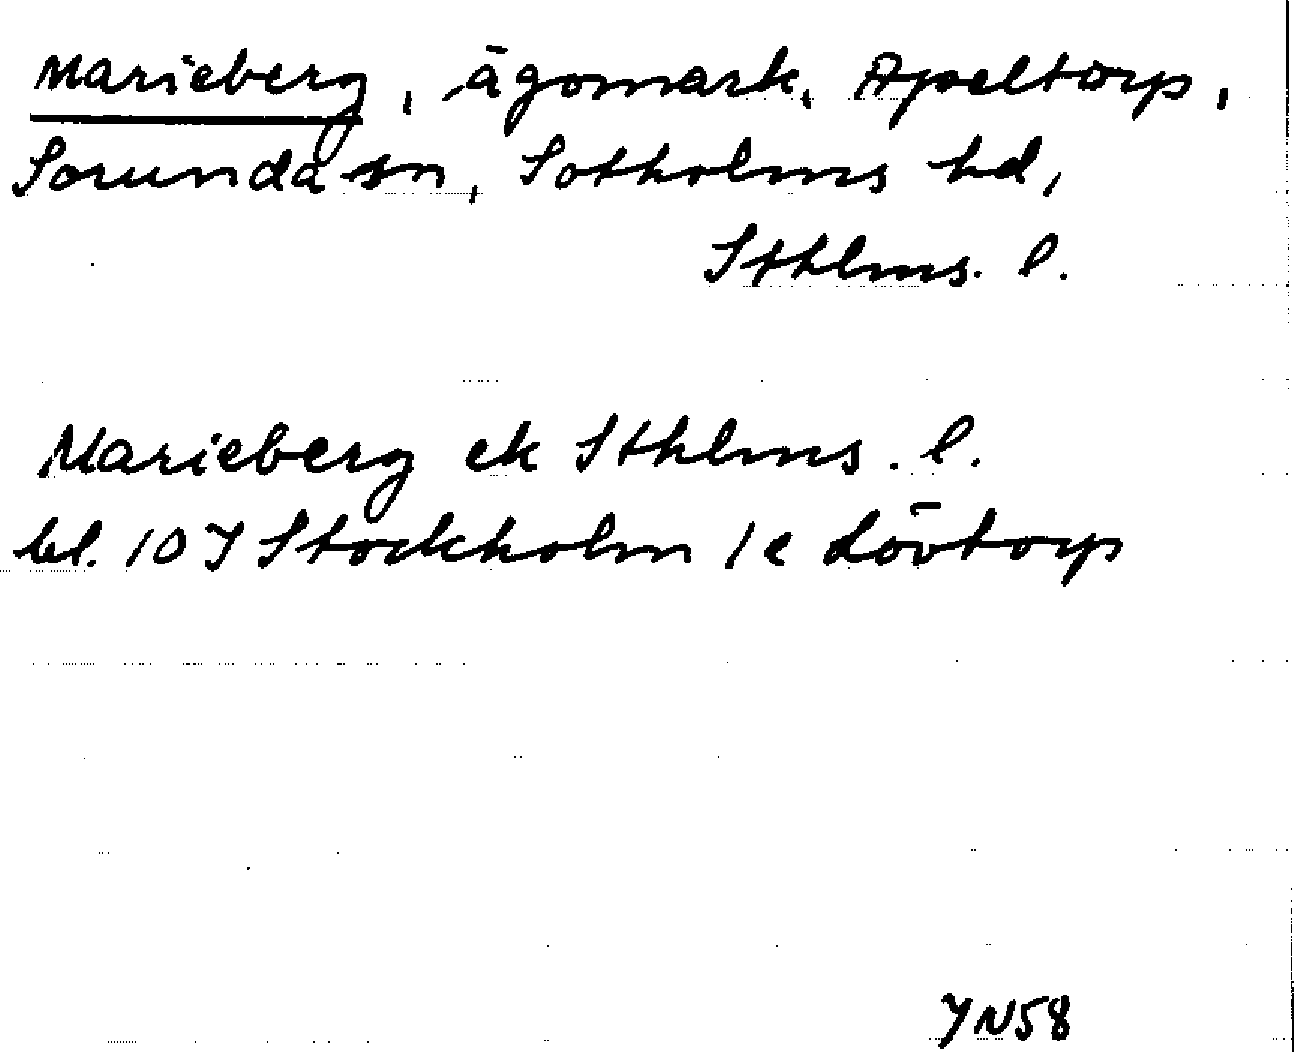 Marieberg, ägomark, Apeltorp,
Sorunda sn, Sotholms hd,
Sthlms. l.
Marieberg ek Sthlms. l.
bl. 10 I Stockholm 1e Lövtorp
YN58